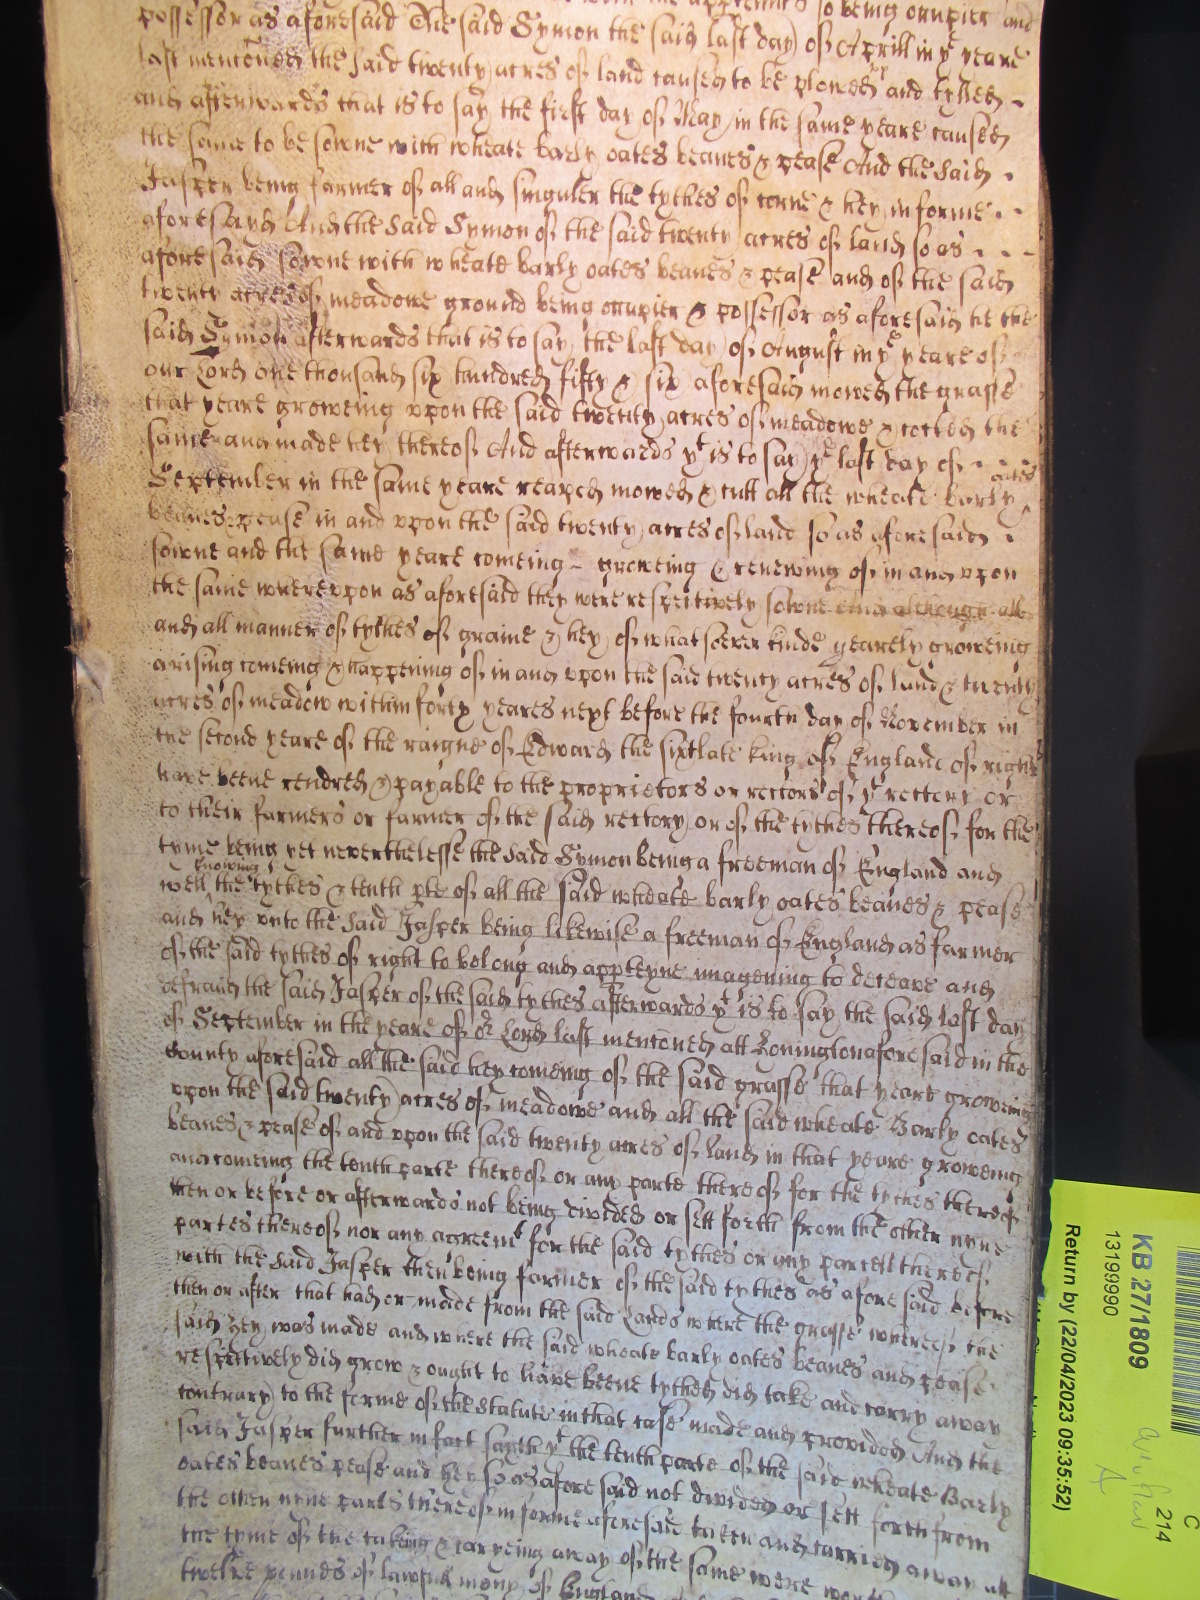 so being occupier and
possessor as aforesaid The said Symon the said last day of Aprill in ye yeare
last mentoned the said twenty acres of land caused to be plowed and tylled
and afterwards that is to say the first day of May in the same yeare caused
the same to be sowne with wheate barly oates beanes & pease And the said
Jasper being farmer of all and singuler the tythes of corne & hey in forme
aforesayd And the said Symon of the said twenty acres of land so as
aforesaid sowne with wheate barly oates beanes & pease and of the said
twenty acres of meadowe ground being occupier & possessor as aforesaid he the
said Symon afterwards that is to say the last day of August in ye yeare of
our Lord one thousand six hundred fifty & six aforesaid mowed the grasse
that yeare groweing upon the said twenty acres of meadowe & cotted the
same and made hey thereof And afterwards yt is to say ye last day of
September in the same yeare reaped mowed & cutt all the wheate barly oates
beanes & pease in and upon the said twenty acres of land so as aforesaid
sowne and the same yeare comeing groweing & renewing of in and upon
the same whereupon as aforesaid they were respectively sowne And although all
and all manner of tythes of graine & hey of whatsoever kinde yearely groweing
ariseing comeing & happening of in and upon the said twenty acres of land & twenty
acres of meadow within forty yeares next before the fourth day of November in
the second yeare of the raigne of Edward the sixt late king of England of right
have beene rendred & payable to the proprietors or rectors of ye rectory or
to their farmers or farmer of the said rectory or of the tythes thereof for the
tyme being yet neverthelesse the said Symon being a freeman of England and
well knowing the tythes & tenth pte of all the said wheate barly oates beanes & pease
and hey unto the said Jasper being likewise a freeman of England as farmer
of the said tythes of right to belong and apperteyne imagening to deceave and
defraud the said Jasper of the said tythes afterwards yt is to say the said last day
of September in the yeare of or Lord last mentoned att Lonington aforesaid in the
County aforesaid all the said hey comeing of the said grasse that yeare groweing
upon the said twenty acres of meadowe and all the said wheate Barly oates
beanes & pease of and upon the said twenty acres of land in that yeare groweing
and comeing the tenth parte thereof or any parte thereof for the tythes thereof
then or before or afterwards not being divided or sett forth from the other nyne
partes thereof nor any agreemt for the said tythes or any parcell thereof
with the said Jasper then being farmer of the said tythes as aforesaid before
then or after that had or made from the said Lands where the grasse whereof the
said hey was made and where the said wheate barly oates beanes and pease
respectively did grow & ought to have beene tythed did take and carry away
contrary to the forme of the statute in that case made and provided And the
said Jasper further in fact sayth yt the tenth parte of the said wheate Barly
oates beanes pease and hey so as aforesaid not divided or sett forth from
the other nyne parts thereof in forme aforesaid taken and carried away att
the tyme of the takeing & carryeing away of the same were worth
twelve pounds of lawfull mony of England
KB 27/1809
13199990
Return by (22/04/2023 09:35:52)
C
214
A